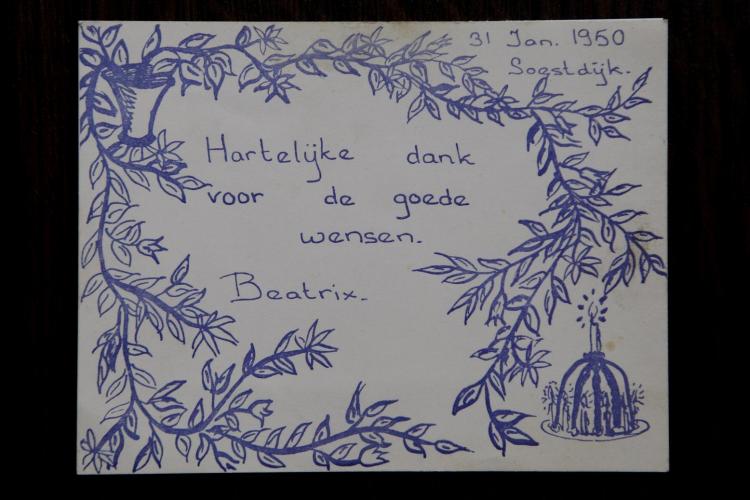 31 Jan. 1950
Soestdijk.
Hartelijke dank
voor de goede
wensen.
Beatrix.